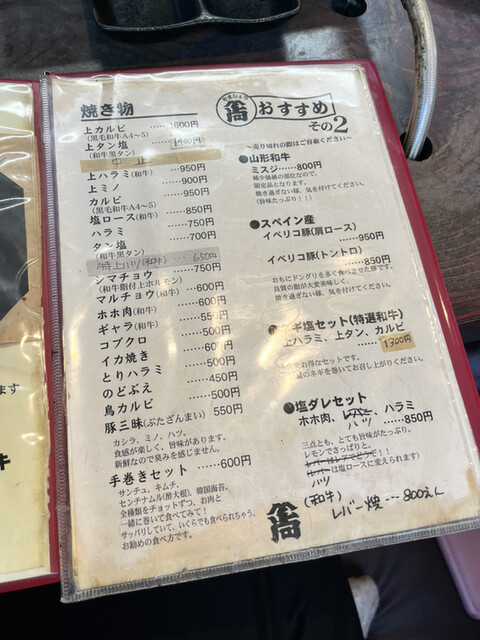 焼き物
上カルビ……1800円
(黒毛和牛A4〜5)
上タン塩
(和牛黒タン)
中止
上ハラミ(和牛)…950円
上ミノ……900円
カルビ……950円
(黒毛和牛A4〜5)
塩ロース(和牛)…850円
ハラミ……750円
タン塩……700円
(和牛黒タン)
特上ハツ(和牛)…650円
シマチョウ……750円
(和牛脂付上ホルモン)
マルチョウ(和牛)…600円
ホホ肉(和牛)……600円
ギャラ(和牛)
コブクロ……500円
イカ焼き
とりハラミ
のどぶえ……450円
鳥カルビ……500円
豚三昧(ぶたざんまい) 550円
カシラ、ミノ、ハツ。
食感が楽しく、旨味があります。
新鮮なので臭みを感じません。
手巻きセット……600円
サンチュ、キムチ、
センチナムル(酢大根)、韓国海苔。
全種類をチョットずつ、お肉と
一緒に巻いて食べてみて!
サッパリしていて、いくらでも食べられちゃう。
お勧めの食べ方です。
おすすめ
その2
〜売り切れの際はご容赦ください〜
●山形和牛
ミスジ……800円
稀少価値の部位なので、
限定品となります。
焼き過ぎない様、気を付けてください。
(旨味たっぷり!!)
●スペイン産
イベリコ豚(肩ロース)
……950円
イベリコ豚(トントロ)
……850円
おもにドングリを多く食べさせた豚です。
良質の脂が大変美味しく、
焼き過ぎない様、気を付けてください。
塩セット(特選和牛)
上ハラミ、上タン、カルビ
お得なセットです。
ネギを巻いてお召し上がりください。
●塩ダレセット
ホホ肉、ハツ、ハラミ
……850円
三点とも、とても旨味がたっぷり。
レモンでさっぱりと。
は塩ロースに変えられます)
ハツ
(和牛)
レバー焼---800えん